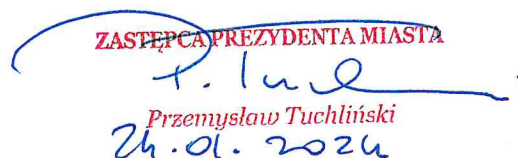 ZASTĘPCA PREZYDENTA MIASTA
Przemysław Tuchliński
24.01.2024